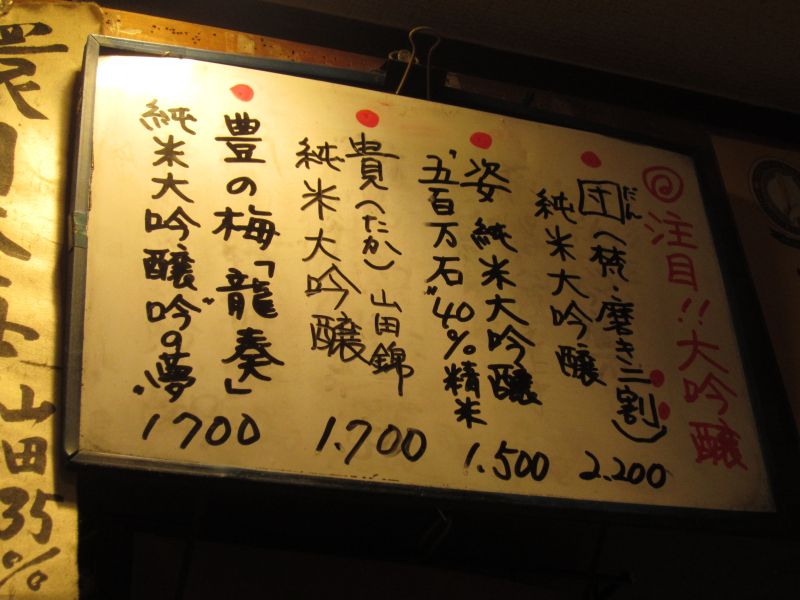 ◎注目!!大吟醸
団(梵・磨き二割)
だん
純米大吟醸
2.200
姿 純米大吟醸
"五百万石"40%精米
1.500
貴(たか) 山田錦
純米大吟醸
1.700
豊の梅「龍奏」
純米大吟醸"吟の夢"
1700
山田35%